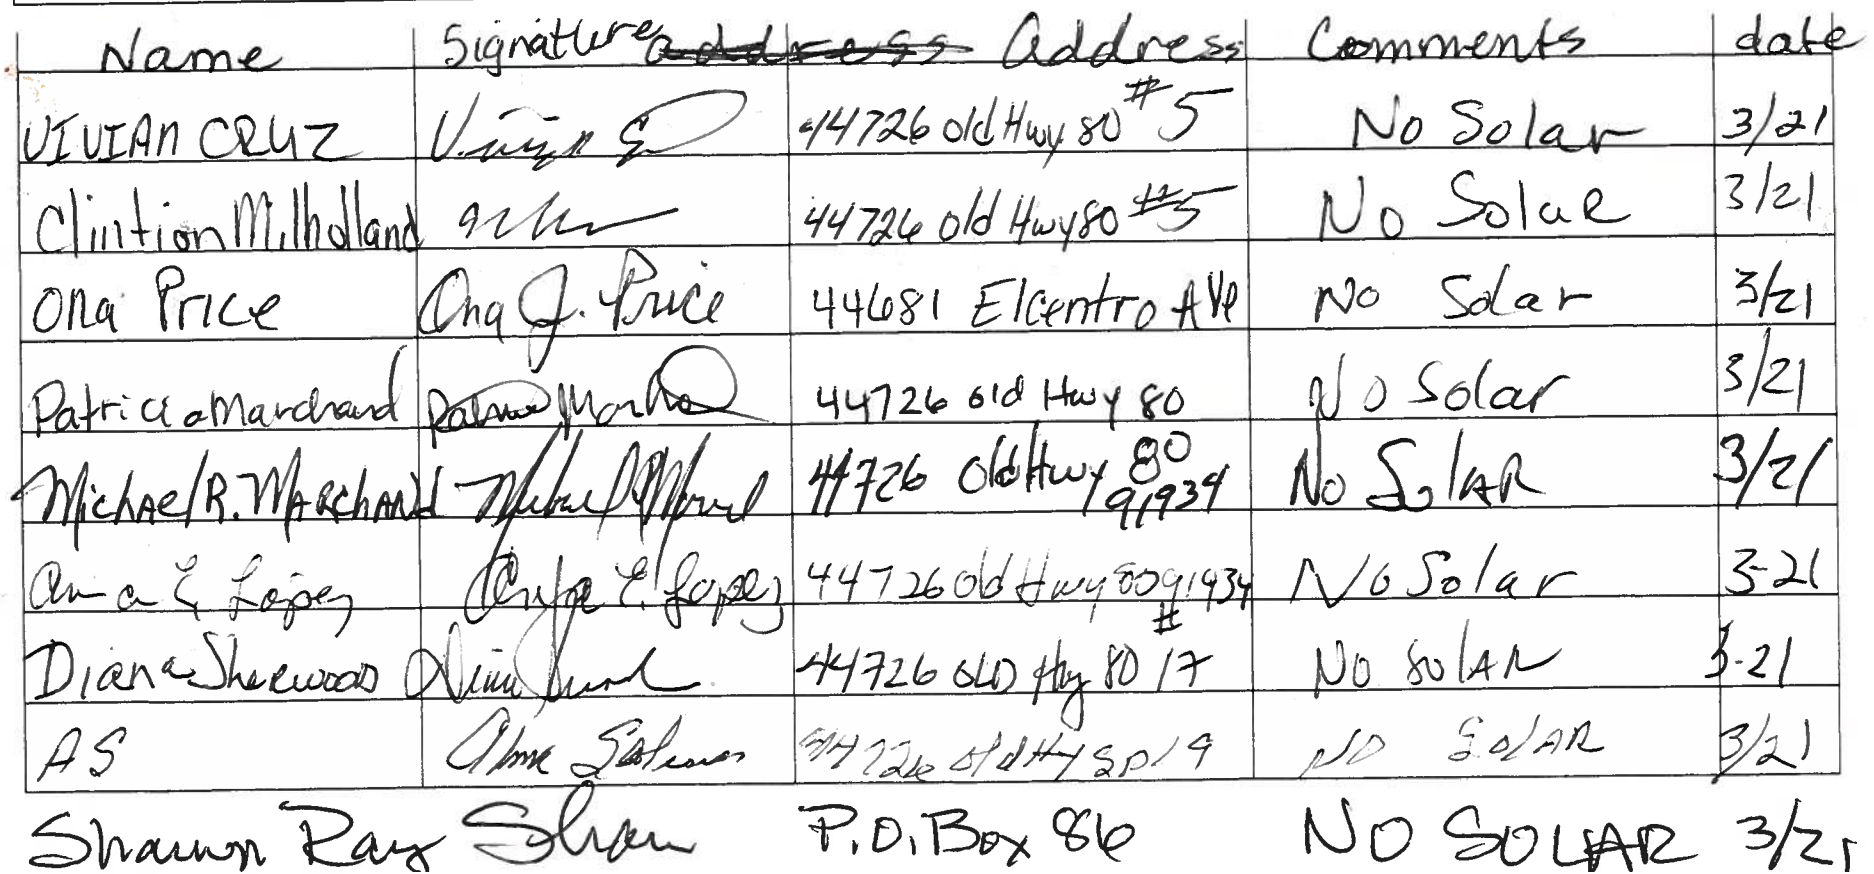 Name Signature address Address Comments date
VIVIAN CRUZ 44726 old Hwy 80 #5 No Solar 3/21
Clintion Milholland 44726 old Hwy 80 #5 No Solar 3/21
Ona Price Ona J. Price 44681 Elcentro Ave No Solar 3/21
Patricia Marchand 44726 old Hwy 80 No Solar 3/21
Michael R. MARchANd 44726 Old Hwy 80 91934 No SolAR 3/21
Ana E Lopez E. Lopez 44726 old Hwy 80 91934 No Solar 3-21
Diana Sherwood 44726 OLD Hwy 80 #17 No SOlAR 3-21
AS 44726 old Hy 80 19 NO SolAR 3/21
Shawn Ray P.O. Box 86 NO SOLAR 3/21